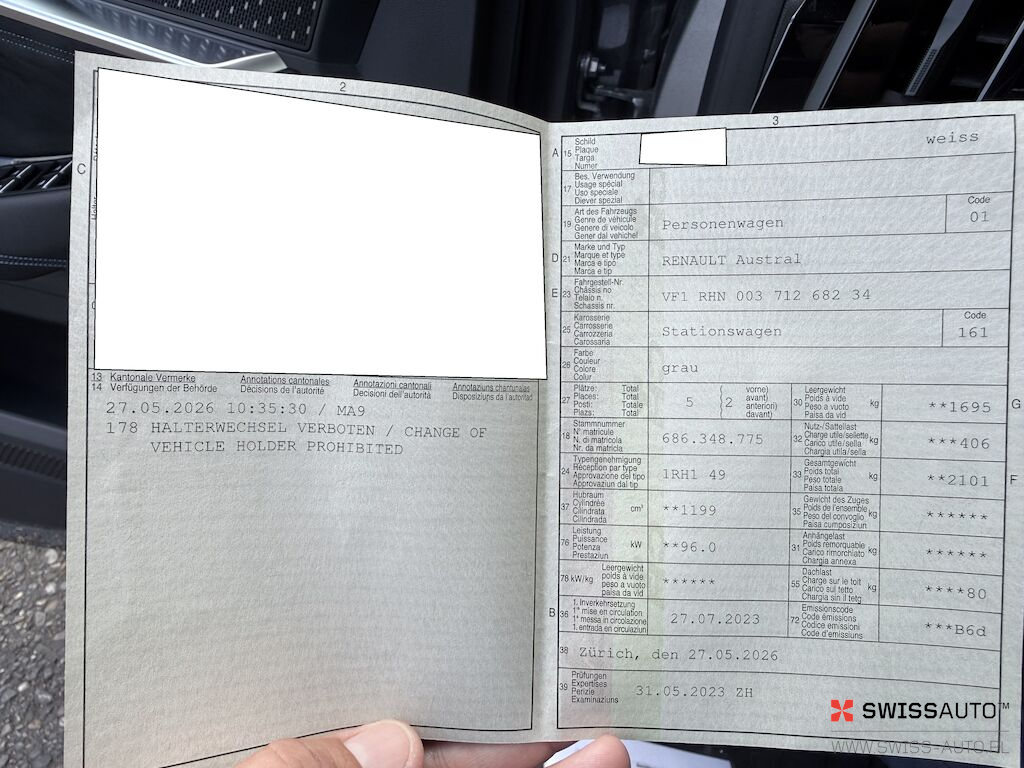 2
C
13 Kantonale Vermerke Annotations cantonales Annotazioni cantonali Annotaziuns chantunalas
14 Verfügungen der Behörde Décisions de l'autorité Decisioni dell'autorità Disposiziuns da l'autoritad
27.05.2026 10:35:30 / MA9
178 HALTERWECHSEL VERBOTEN / CHANGE OF
VEHICLE HOLDER PROHIBITED
3
A 15 Schild
Plaque
Targa
Numer
weiss
17 Bes. Verwendung
Usage spécial
Uso speciale
Diever spezial
19 Art des Fahrzeugs
Genre de véhicule
Genere di veicolo
Gener dal vehichel
Personenwagen
Code
01
D 21 Marke und Typ
Marque et type
Marca e tipo
Marca e tip
RENAULT Austral
E 23 Fahrgestell-Nr.
Châssis no
Telaio n.
Schassis nr.
VF1 RHN 003 712 682 34
25 Karosserie
Carrosserie
Carrozzeria
Carossaria
Stationswagen
Code
161
26 Farbe
Couleur
Colore
Colur
grau
27 Plätze: Total
Places: Total
Posti: Totale
Plazs: Total
5 2 vorne)
avant)
anteriori)
davant)
30 Leergewicht
Poids à vide
Peso a vuoto
Paisa da vid
kg **1695 G
18 Stammnummer
N° matricule
N. di matricola
Nr. da matricla
686.348.775
32 Nutz-/Sattellast
Charge utile/sellette
Carico utile/sella
Chargia utila/sella
kg ***406
24 Typengenehmigung
Réception par type
Approvazione del tipo
Approvaziun dal tip
1RH1 49
33 Gesamtgewicht
Poids total
Peso totale
Paisa totala
kg **2101 F
37 Hubraum
Cylindrée
Cilindrata
Cilindrada
cm³ **1199
35 Gewicht des Zuges
Poids de l'ensemble
Peso del convoglio
Paisa cumposiziun
kg ******
76 Leistung
Puissance
Potenza
Prestaziun
kW **96.0
31 Anhängelast
Poids remorquable
Carico rimorchiato
Chargia annexa
kg ******
78 kW/kg Leergewicht
poids à vide
peso a vuoto
paisa da vid
******
55 Dachlast
Charge sur le toit
Carico sul tetto
Chargia sin il tetg
kg ****80
B 36 1. Inverkehrsetzung
1re mise en circulation
1a messa in circolazione
1. entrada en circulaziun
27.07.2023
72 Emissionscode
Code émissions
Codice emissioni
Code d'emissiuns
***B6d
38 Zürich, den 27.05.2026
39 Prüfungen
Expertises
Perizie
Examinaziuns
31.05.2023 ZH
SWISSAUTO™
WWW.SWISS-AUTO.PL